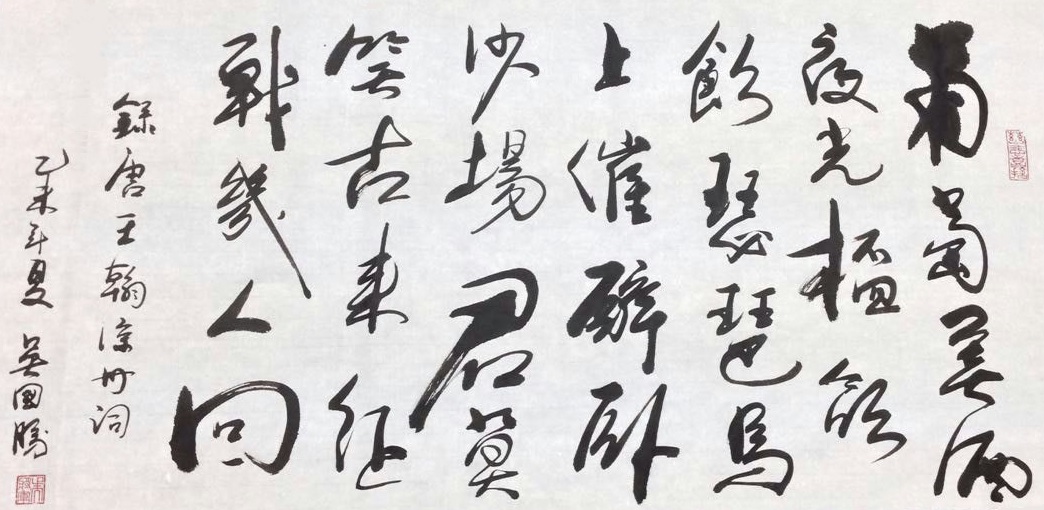 葡萄美酒
夜光杯欲
飲琵琶馬
上催醉卧
沙場君莫
笑古来征
戰幾人回
錄唐王翰涼州詞
乙未年夏 吴国勝